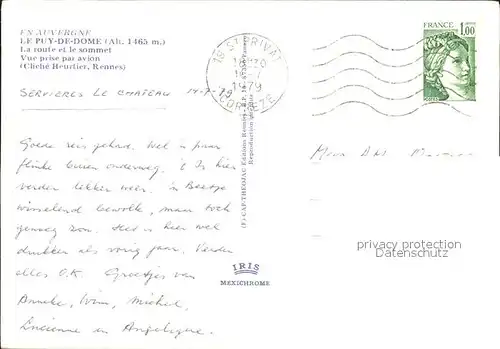 EN AUVERGNE
LE PUY-DE-DOME (Alt. 1465 m.)
La route et le sommet
Vue prise par avion
(Cliché Heurtier, Rennes)
19 ST PRIVAT
1979
CORREZE
FRANCE 1,00
SERVIERES LE CHATEAU 14-7-'79
Goede reis gehad. Wel 'n paar
flinke buien onderweg. 't Is hier
verder lekker weer. 'n Beetje
wisselend bewolkt, maar toch
genoeg zon. Het is hier wel
drukker als vorig jaar. Verder
alles O.K. Groetjes van
Anneke, Wim, Michiel,
Lucienne en Angelique.
IRIS
MEXICHROME
privacy protection
Datenschutz